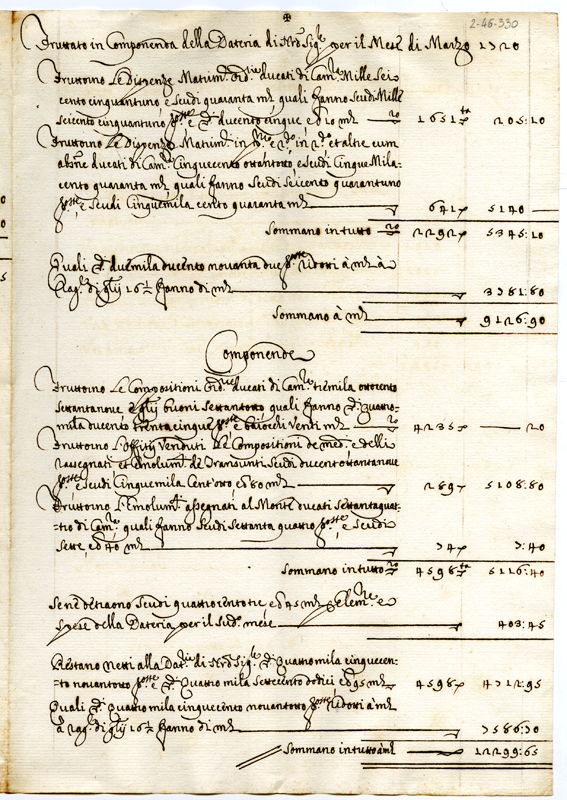 2-46-330
Fruttato in Componenda della Dateria di Nro Sigre per il Mese di Marzo 1720
Fruttorno Le Dispenze Matim. ducati di Camra Mille Sei
cento cinquantuno e Scudi quaranta mta quali fanno Scudi Mille
Seicento cinquantuno stte e ducento cinque e d 10 mta 1651 205:10
Fruttorno Le Dispenze Matim. in et altre cum
ducati di Camra Cinquecento ottantotto e Scudi Cinque Mila
cento quaranta mta quali fanno Scudi Seicento quarantuno
stte e Scudi Cinquemila cento quaranta mta 641 5140
Sommano in tutto 2292 5345:10
Quali duemila ducento novanta due stte ridotti à mta à
Rage di Giulij 16½ fanno di mta 3781:80
Sommano à mta 9126:90
Componende
Fruttorno Le Compositioni ducati di Camra tremila ottocento
Settantanove e buoni Settantotto quali fanno quattro
mila ducento trentacinque stte e baiocchi Venti mta 4235 20
Fruttorno L'offitij Venduti Le Compositioni de med. e delli
rassegnati et Emolumti de Transunti Scudi ducento ottantanove
stte e Scudi Cinquemila Cent'otto e d 80 mta 289 5108:80
Fruttorno L'Emolumti assegnati al Monte ducati Settantaquat
tro di Camra quali fanno Scudi Settanta quattro stte e Scudi
Sette, e d 40 mta 74 7:40
Sommano in tutto 4598 5116:40
Se ne detraono Scudi quattrocentotre e d 45 mta Elemne e
Spese della Dateria per il Sudo mese 403:45
Restano netti alla Datria di Nro Sigre Quattro mila cinquecen
to novantotto stte e Quattro mila Settecento dodici e d 95 mta 4598 4712:95
Quali Quattro mila cinquecento novantotto stte ridotti à mta
à rage di Giulij 16½ fanno di mta 7586:70
Sommano in tutto à mta 12299:65